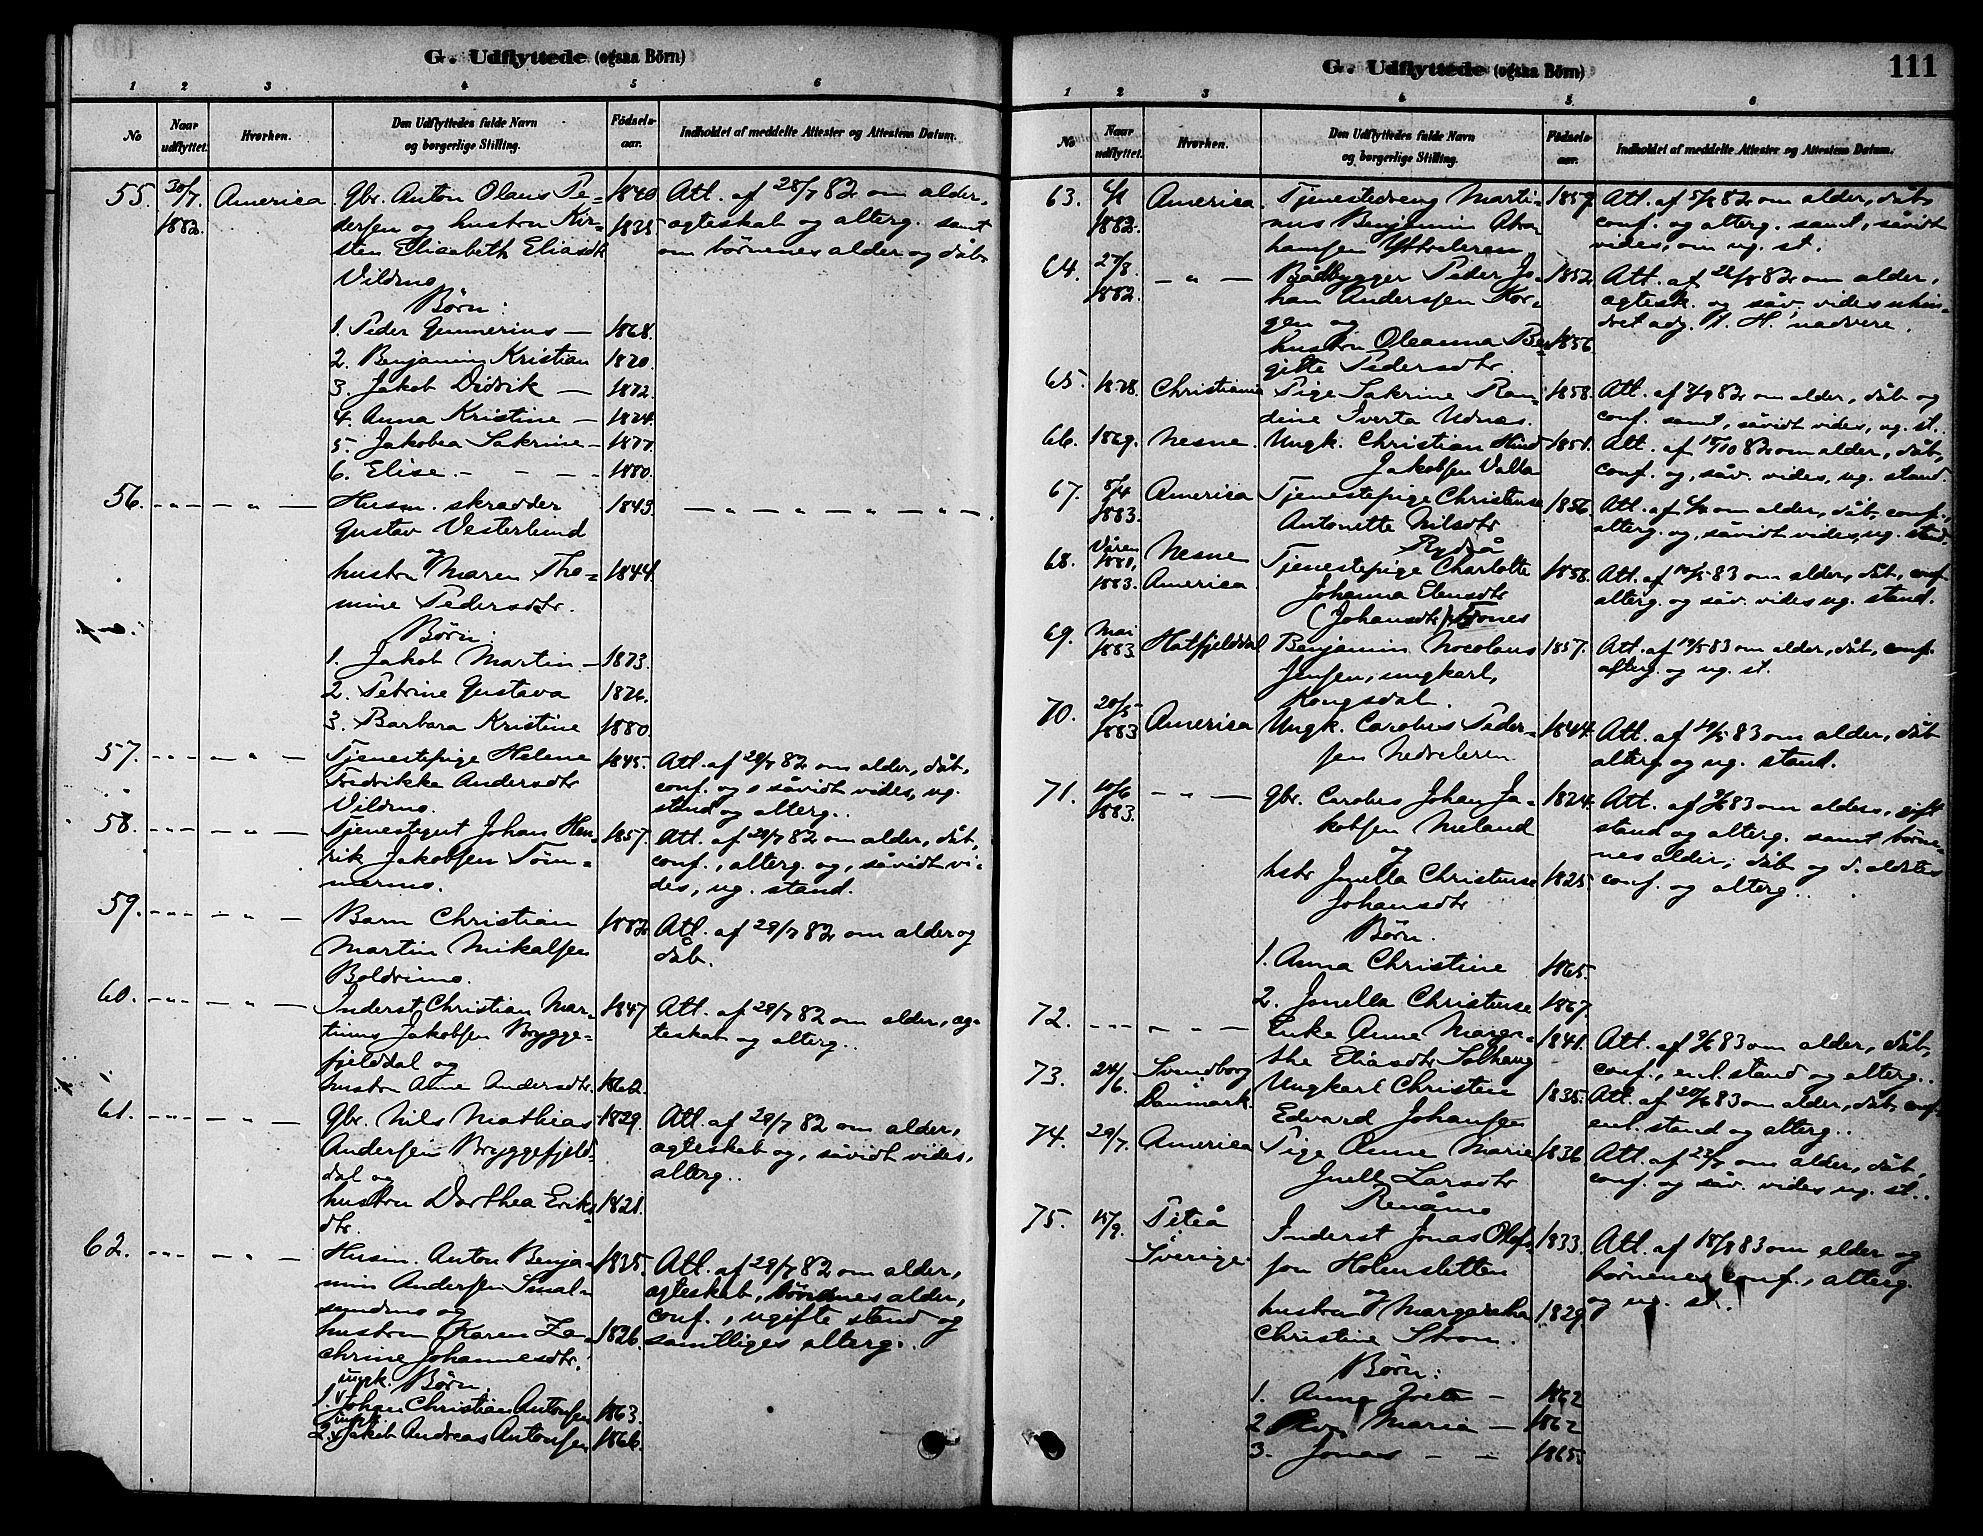 G. Udflyttede (ogsaa Börn)
1 2 3 4 5 6
No
Naar udflyttet.
Hvorhen.
Den Udflyttedes fulde Navn og borgerlige Stilling.
Födselsaar.
Indholdet af meddelte Attester og Attestens Datum.
55. 30/7 1882. America. Gbr. Anton Olaus Pe- 1840 Att. af 28/7 82 om alder,
dersen og hustru Kir- 1835 agteskab og alterg. samt
sten Elisabeth Eliasdtr om börnenes alder og dåb.
Vildmo
Börn:
1. Peder Gunnerius — 1868.
2. Benjamin Kristian 1870.
3. Jakob Didrik — 1872.
4. Anna Kristine — 1874.
5. Jakobea Sakrine — 1877.
6. Elise - - - - 1880.
56. - " - — " — Husm. skrædder 1843. — " — " — " — " — " —
Gustav Vesterlund
og
hustru Maren Tho- 1844.
mine Pedersdtr.
Börn:
1. Jakob Martin — 1873.
2. Petrine Gustava 1876.
3. Barbara Kristine 1880.
57. - " - — " — Tjenestepige Helene 1845. Att. af 29/7 82 om alder, dåb,
Fredrikke Andersdtr conf. og såvidt vides, ug.
Vildmo. stand og alterg..
58. - " - — " — Tjenestegut Johan Hen- 1857. Att. af 29/7 82 om alder, dåb,
rik Jakobsen Töm- conf., alterg. og, såvidt vi-
mermo. des, ug. stand.
59. - " - — " — Barn Christian 1882 Att. af 29/7 82 om alder og
Martin Mikalsen dåb.
Boldrimo.
60. - " - — " — Inderst Christian Mar- 1847 Att. af 29/7 82 om alder, ag-
tinus Jakobsen Brygge- teskab og alterg..
fjelddal og
hustru Ane Andersdtr. 1862.
61. - " - — " — Gbr. Nils Mathias 1829. Att. af 29/7 82 om alder,
Andersen Bryggefjeld- agteskab og, såvidt vides,
dal og alterg..
hustru Dorthea Eriks- 1821.
dtr.
62. - " - — " — Husm. Anton Benja- 1835. Att. af 29/7 82 om alder,
min Andersen Smal- agteskab, börnenes alder,
sundmo og conf., ugifte stand og
hustru Karen Za- 1826. samtliges alterg..
chrine Johannesdtr.
ungk. Börn.
1. Johan Christian Antonsen 1863.
ungk.
2. Jakob Andreas Antonsen 1866.
G. Udflyttede (ogsaa Börn) 111
1 2 3 4 5 6
No
Naar udflyttet.
Hvorhen.
Den Udflyttedes fulde Navn og borgerlige Stilling.
Födselsaar.
Indholdet af meddelte Attester og Attestens Datum.
63. 1882. America. Tjenestedreng Marti- 1859. Att. af 5/8 82 om alder, dåb,
nus Benjamin Abra- conf. og alterg. samt, såvidt
hamsen Ytterleren vides, om ug. st.
64. 27/8. 1882. — " — Bådbygger Peder Jo- 1852 Att. af 26/8 82 om alder,
han Andersen Kor- agtesk. og såv. vides uhin-
gen og dret adg. t. H. nadvere.
hustru Oleanna Ber- 1856.
gitte Pedersdtr.
65. 1878. Christiania Pige Sakrine Ran- 1858. Att. af 7/9 82 om alder, dåb og
dine Iverta Udnæs. conf. samt, såvidt vides, ug. st..
66. 1869. Nesne. Ungk. Christian Hind 1851. Att. af 15/10 82 om alder, dåb,
Jakobsen Valla conf. og, såv. vides, ug. stand.
67. 5/4 1883. America Tjenestepige Christense 1856. Att. af om alder, dåb, conf.,
Antonette Nilsdtr alterg. og, såvidt vides, ug. stand.
68. Våren 1881, 1883. Nesne America. Tjenestepige Charlotte 1858. Att. af 10/5 83 om alder, dåb, conf.
Johanna Elensdtr alterg. og såv. vides ug. stand.
(Johansdtr)
69. Mai 1883. Hatfjelddal Benjamin Nocolaus 1857. Att. af 19/5 83 om alder, dåb, conf.
Jensen, ungkarl, alterg. og ug. st.
Kongsdal.
70. 20/5 1883 America Ungk. Carolius Peder- 1844. Att. af 19/5 83 om alder, dåb
sen Nedreleren alterg. og ug. stand.
71. 10/6 1883. — " — Gbr. Carolus Johan Ja- 1824. Att. af 9/6 83 om alders, gift
kobsen Meland stand og alterg. samt börne-
og nes alder, dåb og d. ældstes
hstr Jonella Christense 1825. conf. og alterg..
Johansdtr
Börn.
1. Anna Christine 1865.
2. Jonella Christense 1867.
72. - - - — " — Enke Anne Marga- 1841. Att. af 9/6 83 om alder, dåb,
the Eliasdtr Solhaug conf., enl. stand og alterg..
73. 24/6 Svendborg Danmark. Ungkarl Christen 1835. Att. af 20/6 83 om alder, dåb, conf.
Edvard Johansen enl. stand og alterg..
74. 29/7. America Pige Anne Marie 1836. Att. af 23/7 om alder, dåb,
Larsdtr conf. og såv. vides ug. st..
Renåmo
75. 15/9. Piteå Sverige. Inderst Jonas Olofs- 1833. Att. af 18/8 83 om alder og
son Holmsletten börnenes conf., alterg.
og og ug. st..
hustru Margaretha 1829
Christine Strom.
Börn:
1. Anna — 1862
2 Maria — 1862
3. Jonas — — 1865